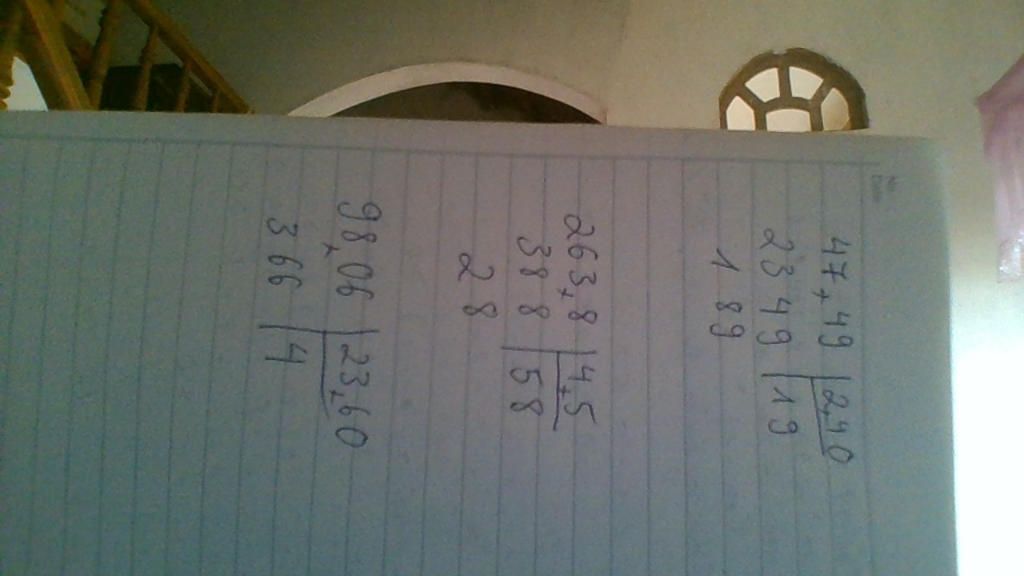 47,49 | 2,40
2349 | 19
189
263,8 | 4,5
388 | 58
28
98,06 | 23,60
366 | 4